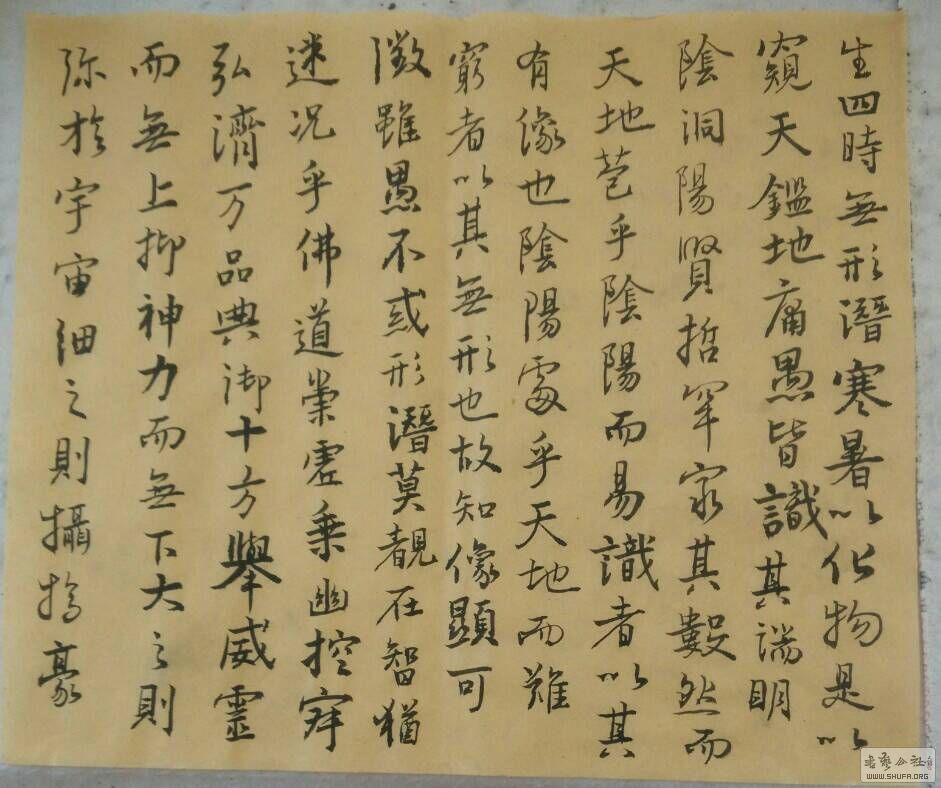 生四時無形潛寒暑以化物是以
窺天鑑地庸愚皆識其端明
陰洞陽賢哲罕窮其數然而
天地苞乎陰陽而易識者以其
有像也陰陽處乎天地而難
窮者以其無形也故知像顯可
徵雖愚不惑形潛莫覩在智猶
迷况乎佛道崇虛乘幽控寂
弘濟万品典御十方舉威靈
而無上抑神力而無下大之則
弥於宇宙細之則攝於豪
書藝公社
WWW.SHUFA.ORG